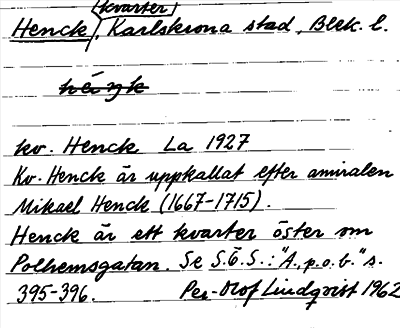 kvarter
Henck, Karlskrona stad, Blek. l.
héŋk
kv. Henck La 1927
Kv. Henck är uppkallat efter amiralen
Mikael Henck (1667-1715).
Henck är ett kvarter öster om
Polhemsgatan. Se S.Ö.S.: "A.p.o.b." s.
395-396. Per-Olof Lindqvist 1962